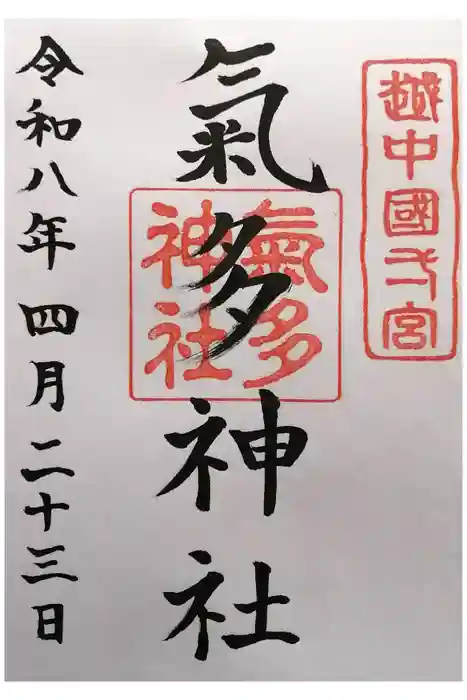 越中國弌宮
氣多神社
氣多神社
令和八年四月二十三日